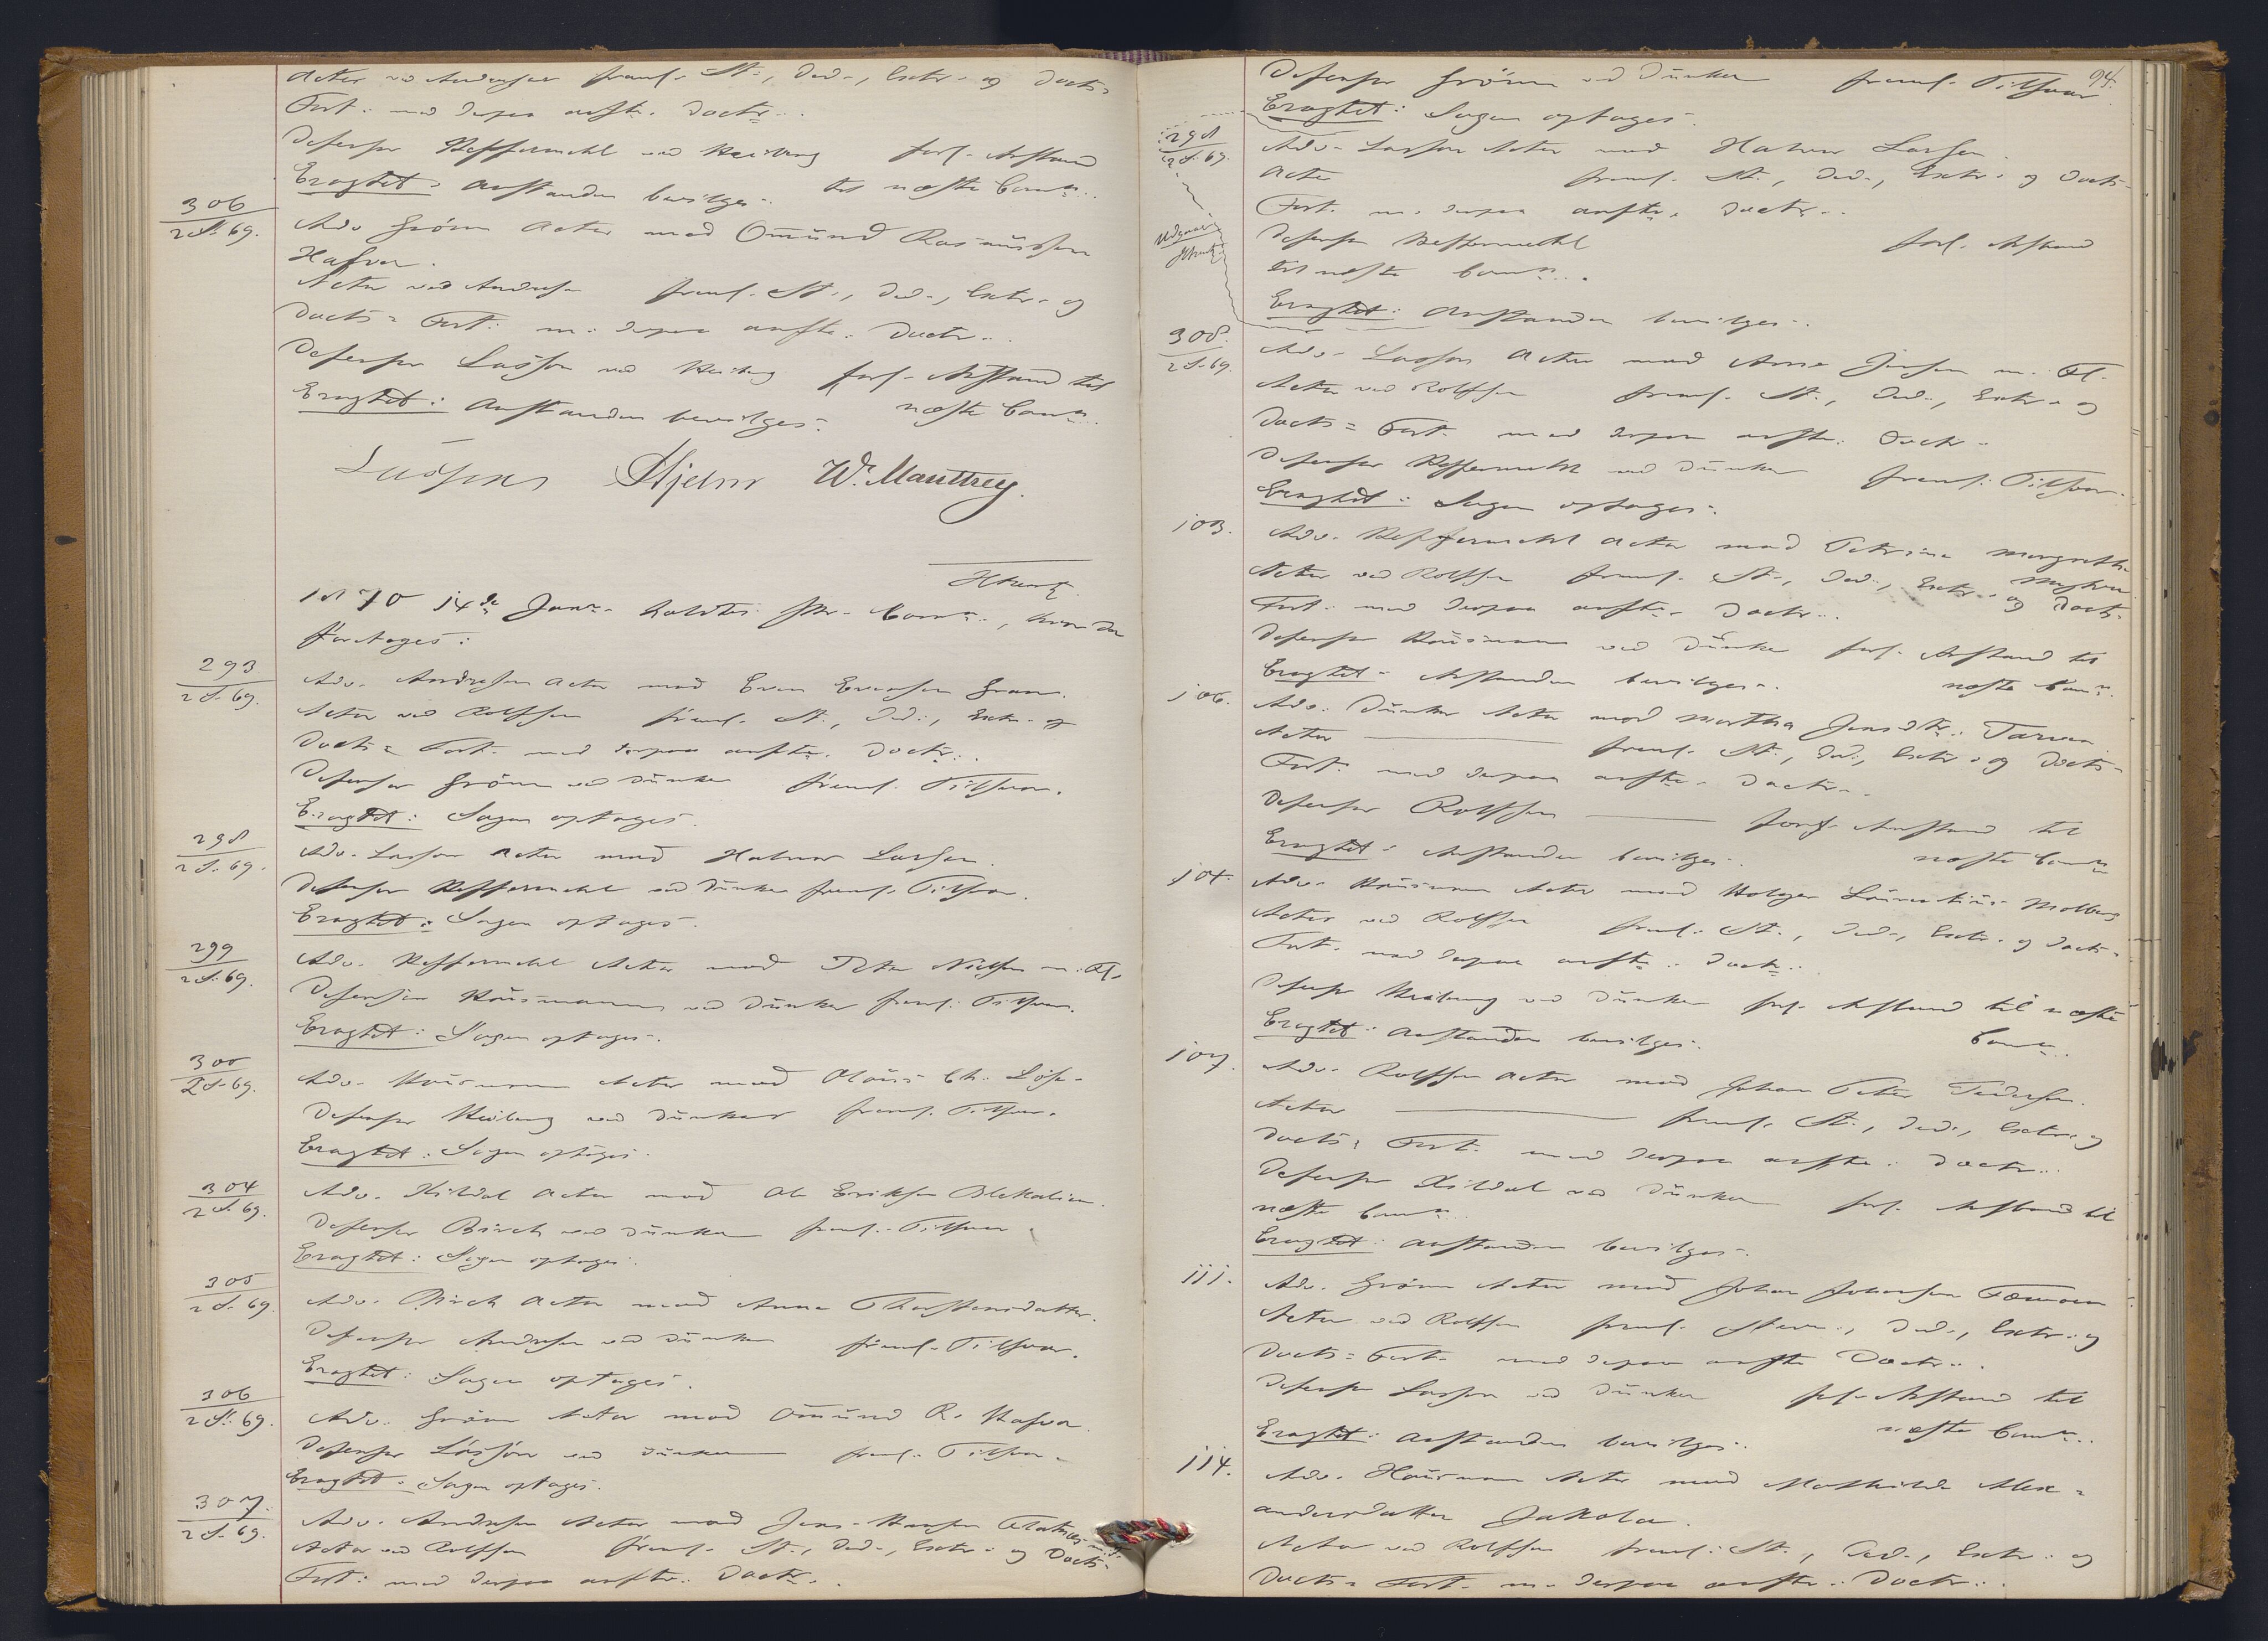 Actor ved Andresen freml. St., Ded., Extr. og Docts=
Fort. med derpaa anførte Doctr.
Defensor Keffermehl ved Heiberg forl. Anstand
Eragtet: Anstanden bevilges. til næste Comn.
306
2 S. 69.
Adv. Grönn Actor mod Omund Rasmussen
Hafsøe.
Actor ved Andresen freml. St., Ded., Extr. og
Docts= Fort. m. derpaa anførte Doctr.
Defensor Lasson ved Heiberg forl. Anstand til
Eragtet: Anstanden bevilges. næste Comn.
Lassens Hjelm W. Manthey.
1870 14de Janr. holdtes Comn., hvor da
foretoges:
293
2 S. 69.
Adv. Andresen Actor mod Even Evensen Gran.
Actor ved Rolfsen freml. St., Ded., Extr. og
Docts= Fort. med derpaa anførte Doctr.
Defensor Grönn ved Dunker freml. Tilsvar.
Eragtet: Sagen optages.
298
2 S. 69.
Adv. Lasson Actor mod Halvor Larsen.
Defensor Keffermehl ved Dunker freml. Tilsvar.
Eragtet: Sagen optages.
299
2 S. 69.
Adv. Keffermehl Actor mod Peter Nielsen m. Fl.
Defensor Hausmann ved Dunker freml. Tilsvar.
Eragtet: Sagen optages.
300
2 S. 69.
Adv. Hausmann Actor mod Olaus Ch.
Defensor Heiberg ved Dunker freml. Tilsvar.
Eragtet: Sagen optages.
304
2 S. 69.
Adv. Kildal Actor mod Ole Eriksen Blekalien.
Defensor Birch ved Dunker freml. Tilsvar.
Eragtet: Sagen optages.
305
2 S. 69.
Adv. Birch Actor mod Anne Thorstensdatter.
Defensor Andresen ved Dunker freml. Tilsvar.
Eragtet: Sagen optages.
306
2 S. 69.
Adv. Grönn Actor mod Omund R. Hafsøe.
Defensor Lasson ved Dunker freml. Tilsvar.
Eragtet: Sagen optages.
307.
2 S. 69.
Adv. Andresen Actor mod Jens Hansen
Actor ved Rolfsen freml. St., Ded., Extr. og Docts=
Fort. med derpaa anførte Doctr.
94.
Defensor Grönn ved Dunker freml. Tilsvar.
Eragtet: Sagen optages.
298
2 S. 69.
Adv. Lasson Actor mod Halvor Larsen.
Actor freml. St., Ded., Extr. og Docts=
Fort. m. derpaa anførte Doctr.
Udgaaer
Defensor Keffermehl forl. Anstand
til næste Comn.
Eragtet: Anstanden bevilges.
308.
2 S. 69.
Adv. Lasson Actor mod Arne Jensen m. Fl.
Actor ved Rolfsen freml. St., Ded., Extr. og
Docts= Fort. med derpaa anførte Doctr.
Defensor Keffermehl ved Dunker freml. Tilsvar.
Eragtet: Sagen optages.
103.
Adv. Keffermehl Actor mod Petrine Margrethe
Actor ved Rolfsen freml. St., Ded., Extr. og Docts=
Fort. med derpaa anførte Doctr.
Defensor Hausmann ved Dunker forl. Anstand til
Eragtet: Anstanden bevilges. næste Comn.
106.
Adv. Dunker Actor mod Martha Jensdtr.
Actor freml. St., Ded., Extr. og Docts=
Fort. med derpaa anførte Doctr.
Defensor Rolfsen forl. Anstand til
Eragtet: Anstanden bevilges. næste Comn.
104.
Adv. Hausmann Actor mod Holger Laurentius Molberg
Actor ved Rolfsen freml. St., Ded., Extr. og Docts=
Fort. med derpaa anførte Doctr.
Defensor Heiberg ved Dunker forl. Anstand til næste
Eragtet: Anstanden bevilges. Comn.
107.
Adv. Rolfsen Actor mod Johan Peter Pedersen.
Actor freml. St., Ded., Extr. og
Docts= Fort. med derpaa anførte Doctr.
Defensor Kildal ved Dunker forl. Anstand til
næste Comn.
Eragtet: Anstanden bevilges.
111.
Adv. Grönn Actor mod Johan Johansen
Actor ved Rolfsen freml. Stevn., Ded., Extr. og
Docts= Fort. med derpaa anførte Doctr.
Defensor Lasson ved Dunker forl. Anstand til
Eragtet: Anstanden bevilges. næste Comn.
114.
Adv. Hausmann Actor mod Mathilde Alex=
andersdatter Jakola.
Actor ved Rolfsen freml. St., Ded., Extr. og
Docts= Fort. m. derpaa anførte Doctr.